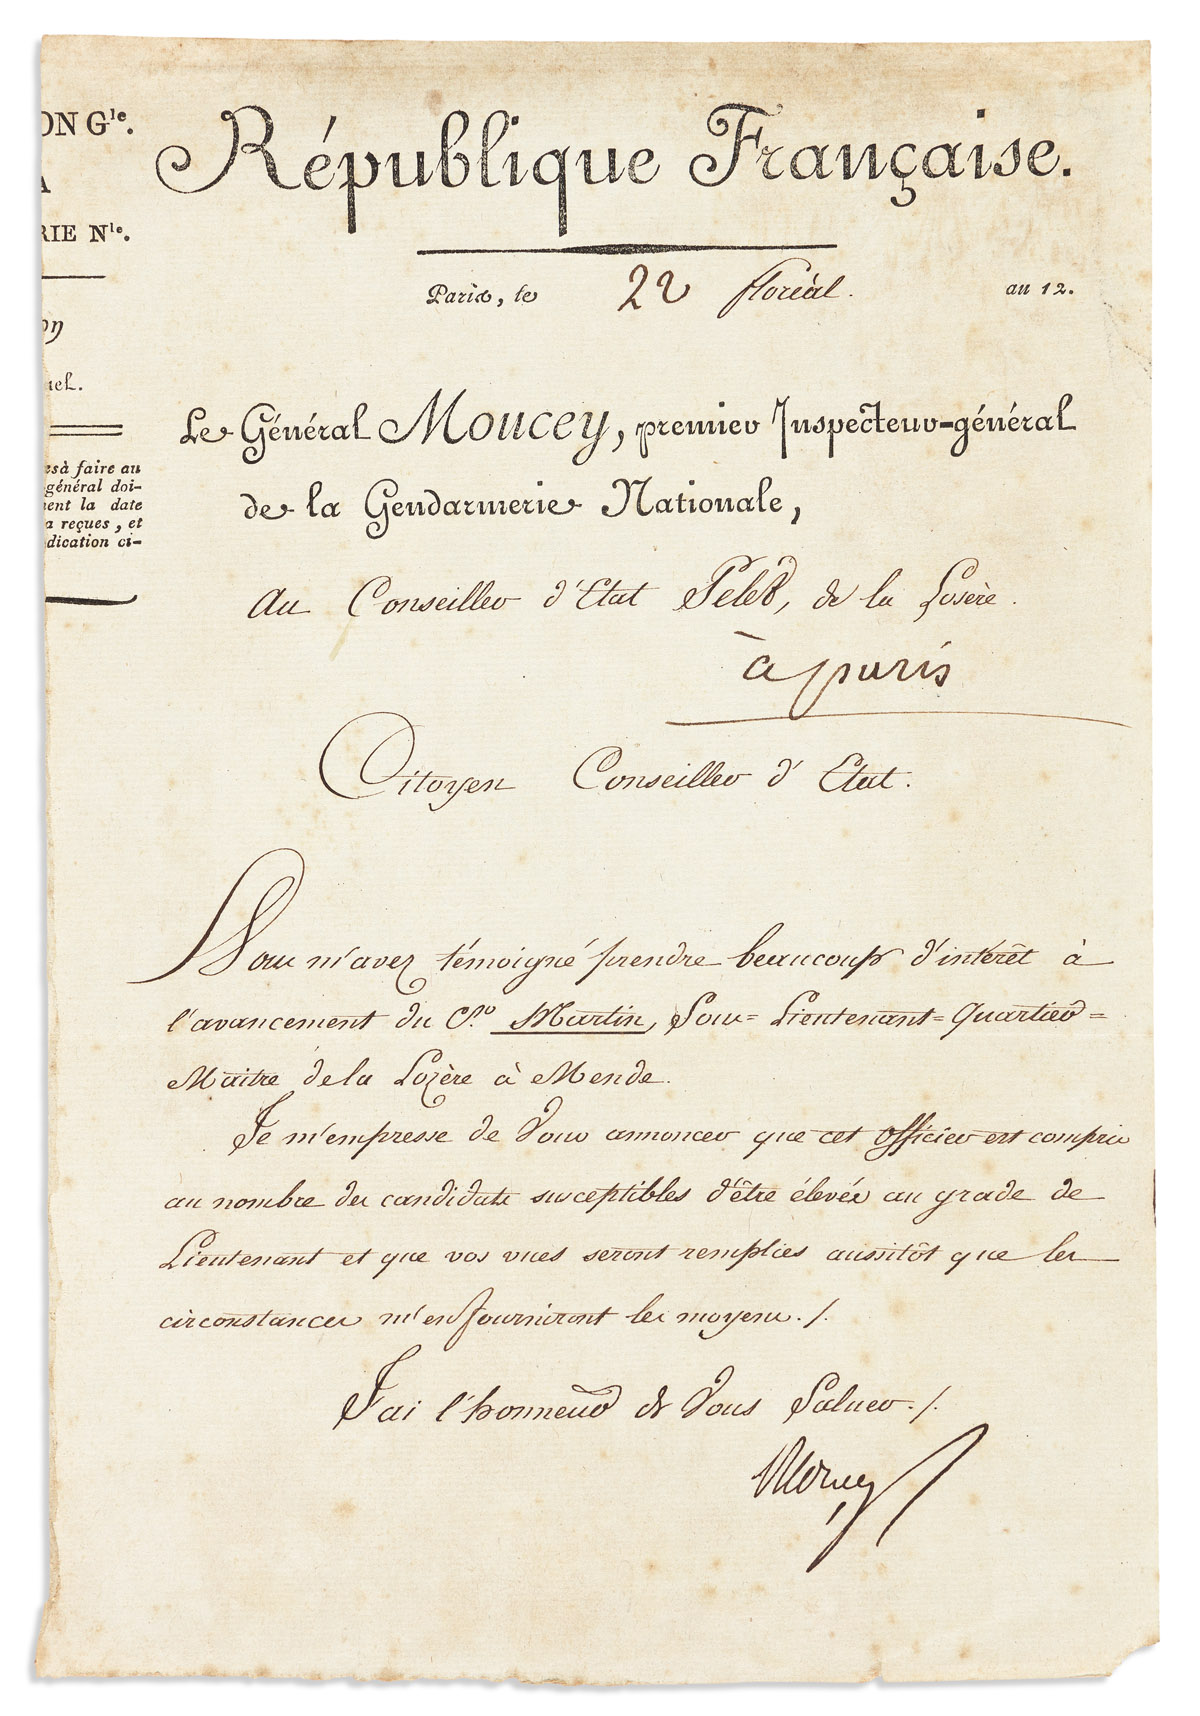 ON Gle.
A
RIE Nle.
on
nel.
es à faire au
général doi-
ent la date
a reçues, et
dication ci-
République Française.
Paris, le 22 floréal. an 12.
Le Général Moncey, premier Inspecteur-général
de la Gendarmerie Nationale,
Au Conseiller d'Etat Pelet, de la Losère.
à paris
Citoyen Conseiller d'Etat.
Vous m'avez témoigné prendre beaucoup d'intérêt à
l'avancement du Cen Martin, Sous=Lieutenant=Quartier=
Maitre de la Lozère à Mende.
Je m'empresse de Vous annoncer que cet Officier est compris
au nombre des candidats susceptibles d'être élevés au grade de
Lieutenant et que vos vues seront remplies aussitôt que les
circonstances m'en fourniront les moyens./.
J'ai l'honneur de Vous Saluer./.
Moncey